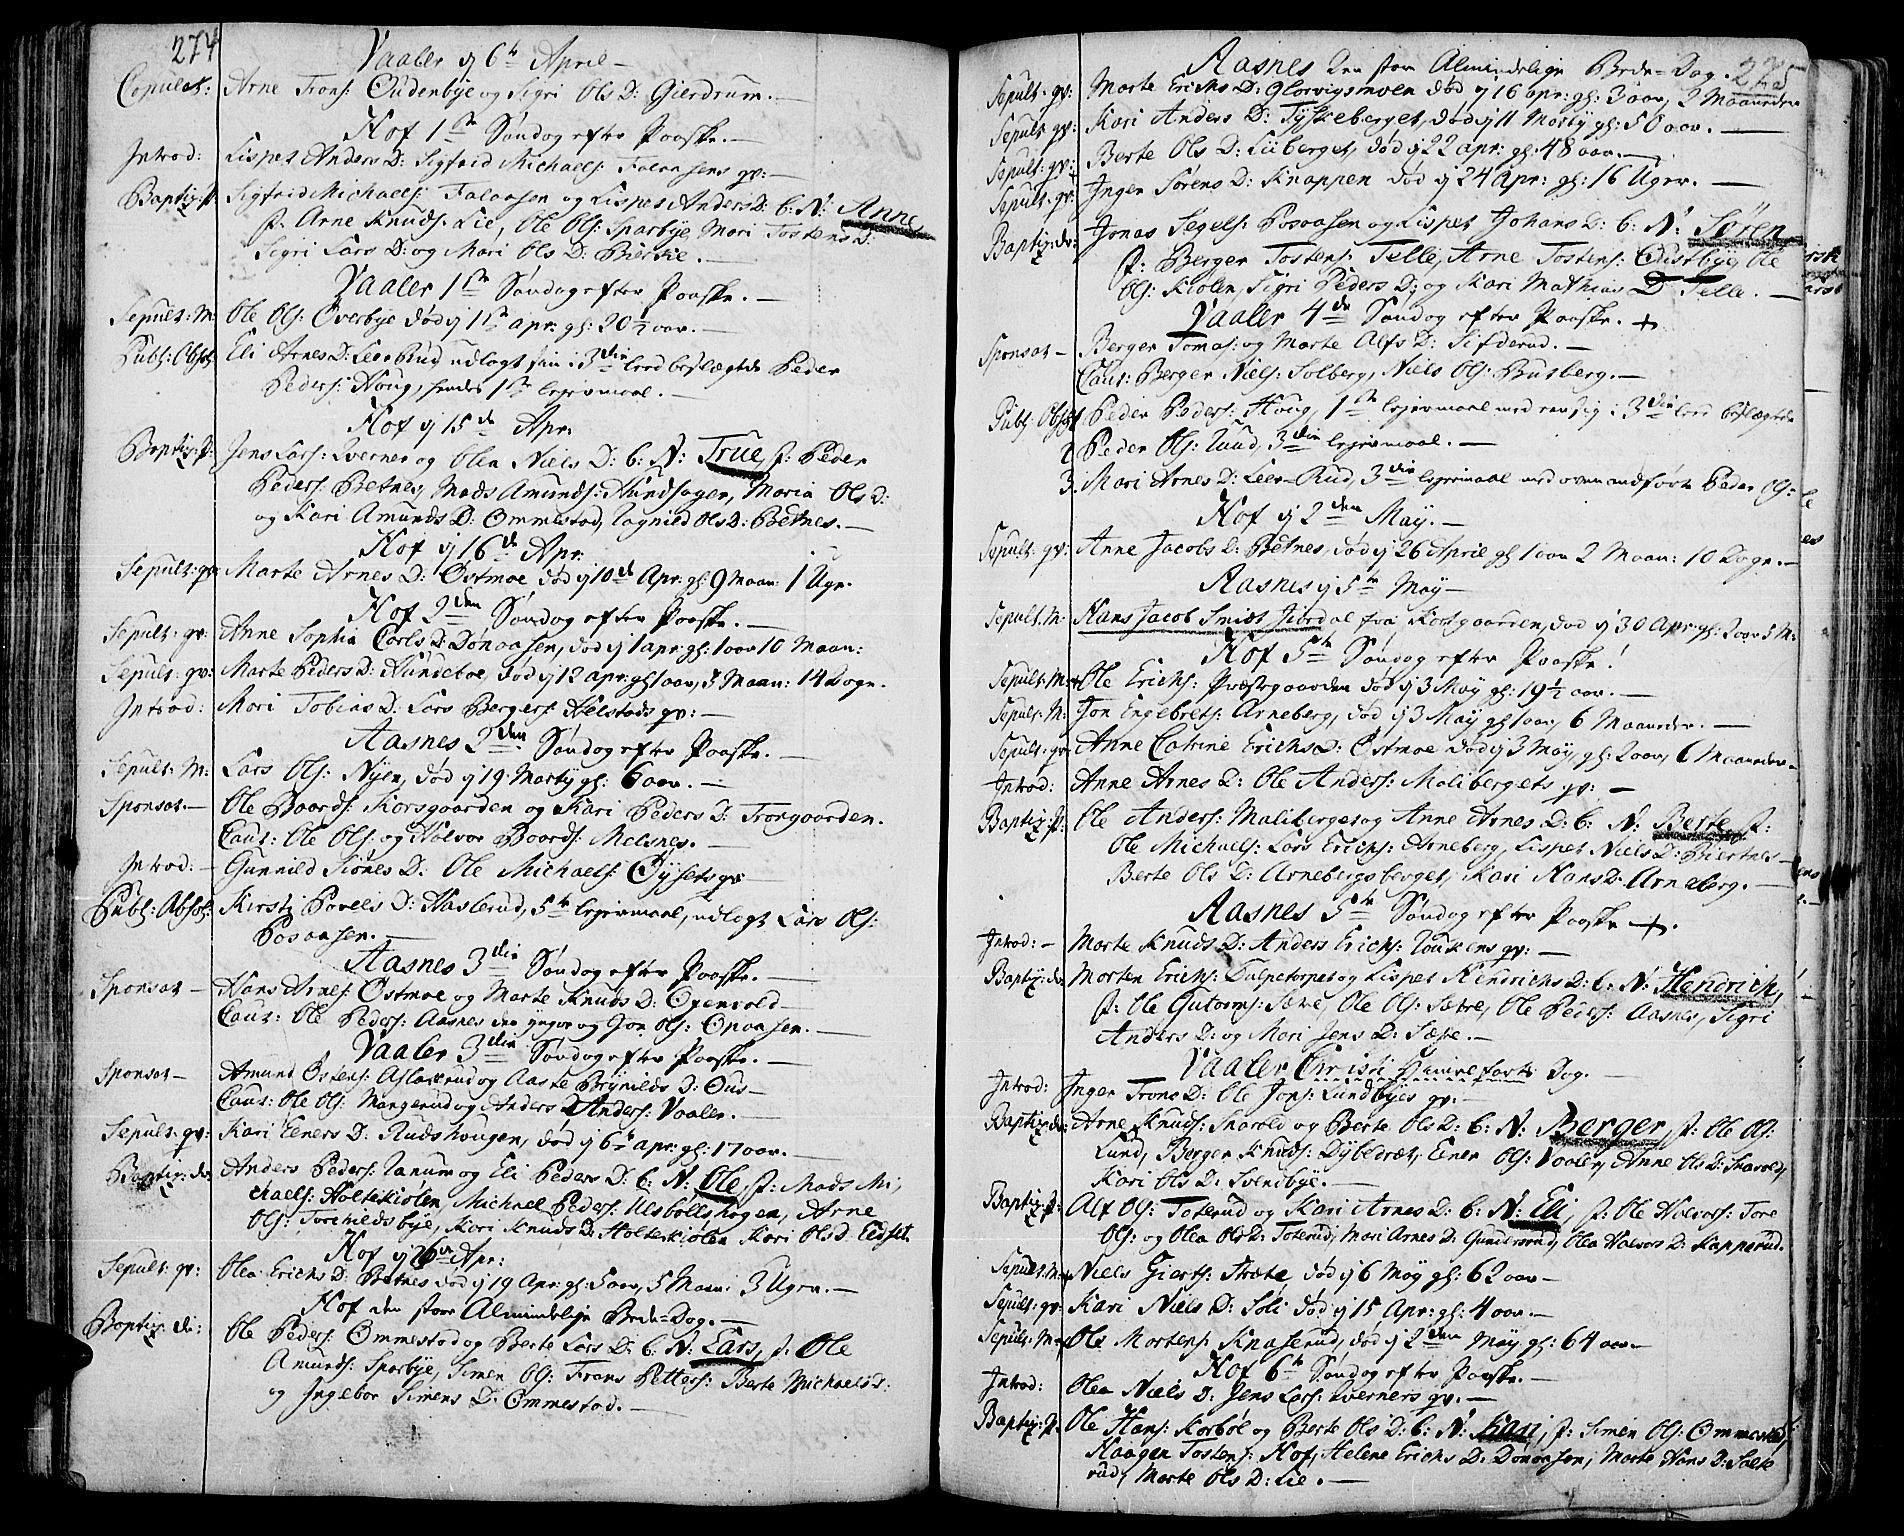 274
Vaaler d 6te April —
Copulat: Arne Trons: Oudenbye og Sigri Ols D: Gierdrum. —
Hof 1ste Søndag efter Paaske. —
Introd: Lispet Anders D: Sigfrid Michaels: Falaasens qv: —
Baptiz: Sigfrid Michaels: Falaasen og Lispet Anders D: b: N: Anne
f: Arne Knuds: Lie, Ole Ols: Sparbye, Mari Tostens D:
Sigri Lars D: og Mari Ols D: Biørkie. —
Vaaler 1ste Søndag efter Paaske. —
Sepult: M: Ole Ols: Overbye død d 1ste apr: gl: 20½ aar. —
Publ: Absol: Eli Arnes D: Leer-Rud udlagt sin i 3die leed beslægtede Peder
Peders: Houg, hendes 1ste leyermaal. —
Hof d 15de Apr:
Baptiz: Jens Lars: Kverner og Olea Niels D: b: N: True, f: Peder
Peders: Betnes, Mads Amunds: Hundsager, Maria Ols D:
og Kari Amunds D: Ommestad, Ragnild Ols D: Betnes. —
Hof d 16de Apr:
Sepult: qv: Marte Arnes D: Østmoe død d 10de Apr: gl: 9 Maan: 1 Uge.
Hof 2den Søndag efter Paaske. —
Sepult: qv: Anne Sophia Carls D: Dønaasen, død d 1 apr: gl: 1 aar 10 Maan:
Sepult: qv: Marte Peders D: Hunsetoe, død d 12 apr: gl 1 aar, 3 Maan: 14 Dage.
Introd: Mari Tobias D: Lars Bergers: Helstads qv: —
Aasnes 2den Søndag efter Paaske. —
Sepult: M: Lars Ols: Nyen, død d 19 Marty gl: 6 aar. —
Sponsat. — Ole Baards: Korsgaarden og Kari Peders D: Trongaarden.
Caut: Ole Ols: og Halvor Baards: Melsnes. —
Introd: — Gunnild Siønes D: Ole Michaels: Øysets qv —
Publ: Absol: Kirsti Povels D: Haslerud, 5te leyermaal, udlagt Lars Ols:
Posaasen. —
Aasnes 3die Søndag efter Paaske. —
Sponsat — Hans Arnes: Østmoe og Marte Knuds D: Ogenvold —
Caut: Ole Peders: Aasnes den yngre og Jon Ols: Opaasen. —
Vaaler 3die Søndag efter Paaske. —
Sponsat — Amund Ostens: Aslackrud og Aaste Brynilds D: Ous —
Caut: Ole Ols: Mangerud og Anders Anders: Vaaler. —
Sepult: qv: Kari Eeners D: Rudshougen, død d 6te apr: gl: 17 aar. —
Baptiz: do: Anders Peders: Ranum og Eli Peders D: b: N: Ole, f: Mads Mi,
chaels: Holtekiølen, Michael Peders: Ulsbollshagen, Arne
Ols: Torchildsbye, Kari Knuds D: Holtekiølen Kari Ols D: Eidset
Hof d 26de Apr:
Sepult: qv: Olea Erichs D: Betnes død d 19 Apr: gl: 5 aar, 5 Maan: 3 Uger. —
Hof den store Almindelige Bede-Dag. —
Baptiz: do: Ole Peders: Ommestad og Berte Lars D: b: N: Lars, f: Ole
Amunds: Sparbye, Simen Ols: Frans Petters: Berte Michaels D:
og Ingebor Simens D: Ommestad. —
225
Aasnes den store Almindelige Bede-Dag.
Sepult: qv: Marte Erichs D: Glorvigsmoen død d 16 apr: gl: 3 aar, 2 Maaneder
Sepult: qv: Kari Anders D: Tyskeberget, død d 11 Marty gl: 50 aar. —
Sepult: qv: Berte Ols D: Liberget, død d 22 apr: gl: 48 aar. —
Sepult: qv: Inger Sørens D: Knappen død d 24 Apr: gl: 16 Uger. —
Baptiz: do: Jonas Segels: Posaasen og Lispet Johans D: b: N: Sören
f: Berger Tostens: Telle, Arne Tostens: Oustbye, Ole
Ols: Kiølen, Sigri Peders D: og Kari Mathias D Telle. —
Vaaler 4de Søndag efter Paaske. —
Sponsat — Berger Tomas: og Marte Alfs D: Sifderud. —
Caut: Berger Niels: Solberg, Niels Ols: Busberg. —
Publ: Absol: 1 Peder Peders: Houg, 1ste leyermaal med een sig i 3die leed beslægtede
2 Peder Ols: Ruud, 3die leyermaal. —
3. Mari Arnes D: Leer-Rud, 3die leyermaal med ovenanførte Peder Ols:
Hof d 2den May. —
Sepult: qv: Anne Jacobs D: Betnes, død d 26 Aprile gl 1 aar 2 Maan: 10 Dage. —
Aasnes d 5te May —
Sepult: M: Hans Jacob Smidt Jiordal fra Korsgaarden, død d 30 Apr: gl: 2 aar 3 M:
Hof 5te Søndag efter Paaske!
Sepult: M: Ole Erichs: Præstegaarden død d 3 May gl: 19½ aar. —
Sepult: M: Jon Engebrets: Arneberg, død d 3 May gl 1 aar, 6 Maaneder. —
Sepult: qv: Anne Catrine Erichs D: Østmoe død d 3 May, gl: 2 aar, 6 Maaneder —
Introd: Anne Arnes D: Ole Anders: Malibergets qv: —
Baptiz: Ole Anders: Maliberget og Anne Arnes D: b: N: Berte, f:
Ole Michaels: Lars Erichs: Arneberg, Lispet Niels D: Biertnes —
Berte Ols D: Arnebergsberget, Kari Hans D: Arneberg. —
Aasnes 5te Søndag efter Paaske.
Introd: — Marte Knuds D: Anders Erichs: Roukens qv: —
Baptiz: do: Morten Erichs: Kalpetorpet og Lispet Hendrichs D: b: N: Hendrich,
f: Ole Gutorms: Sætre, Ole Ols: Sætre, Ole Peders: Aasnes, Sigri
Anders D: og Mari Jens D: Sæsse. —
Vaaler Christi Himmelfarts Dag. —
Introd: Inger Trons D: Ole Jons: Lundbyes qv: —
Baptiz: do: Arne Knuds: Skarold og Berte Ols D: b: N: Berger, f: Ole Ols:
Lund, Berger Knuds: Dybdræt, Eener Ols: Vaaler, Anne Ols D: Skarold,
Kari Ols D: Svendbye. —
Baptiz: Alf Ols: Toterud og Kari Arnes D: b: N: Eli, f: Ole Halvors: Tore
Ols: og Olea Ols D: Toterud, Mari Arnes D: Gundersrud, Olea Halvors D: Kapperud.
Sepult: M: Niels Gierts: Træte, død d 6 May gl: 62 aar —
Sepult: qv: Kari Niels D: Soli død d 15 Apr: gl: 4 aar. —
Sepult: M: Ole Mortens: Knaserud, død d 2den May gl: 64 aar. —
Hof 6te Søndag efter Paaske. —
Introd: Olea Niels D: Jens Lars: Kverners qv: —
Baptiz: Ole Hans: Korbøl og Berte Ols D: b: N: Kari, f: Simen Ols: Ommestad,
Haagen Tostens: Hof, Helene Erichs D: Dønaasen, Marte Hans D: Salte
rud, Marte Ols D: Lie. —